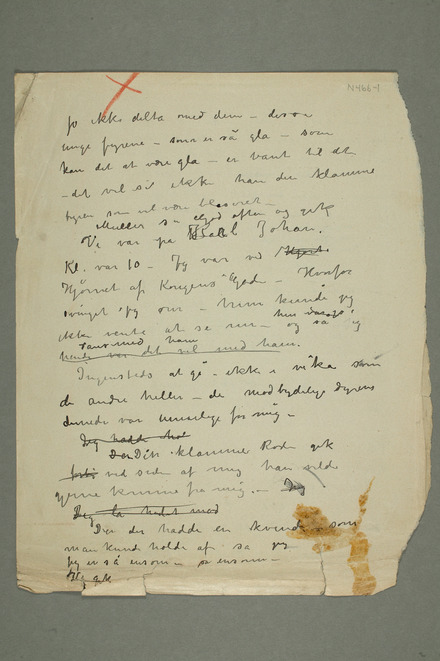 N466-1
jo ikke delta med dem – disse
unge fyrene – som er så gla – som
kan det at være gla – er vant til det
– det vil si ikke han den klamme
fyren som vil være blaseret –
Møller sa og gik
Vi var på Karl Johan.
Kl. var 10 – Jeg var ved
Hjørnet af Kongens Gade – Hvorfor
svinget jeg om – hun kunde jeg
ikke vente at se nu – og så
det vil med ham.
Ingensteds at gå – ikke i vika som
de andre heller – de modbydelige dyrene
dernede var umulige for mig –
Jeg hadde
Den klamme Roden gik
ved siden af mig han vilde
gjerne komme fra mig – Jeg
Jeg la hodet mod
Den der hadde en kvinde – som
man kunde holde af – sa jeg
Jeg er så ensom – så ensom –
Jeg gik